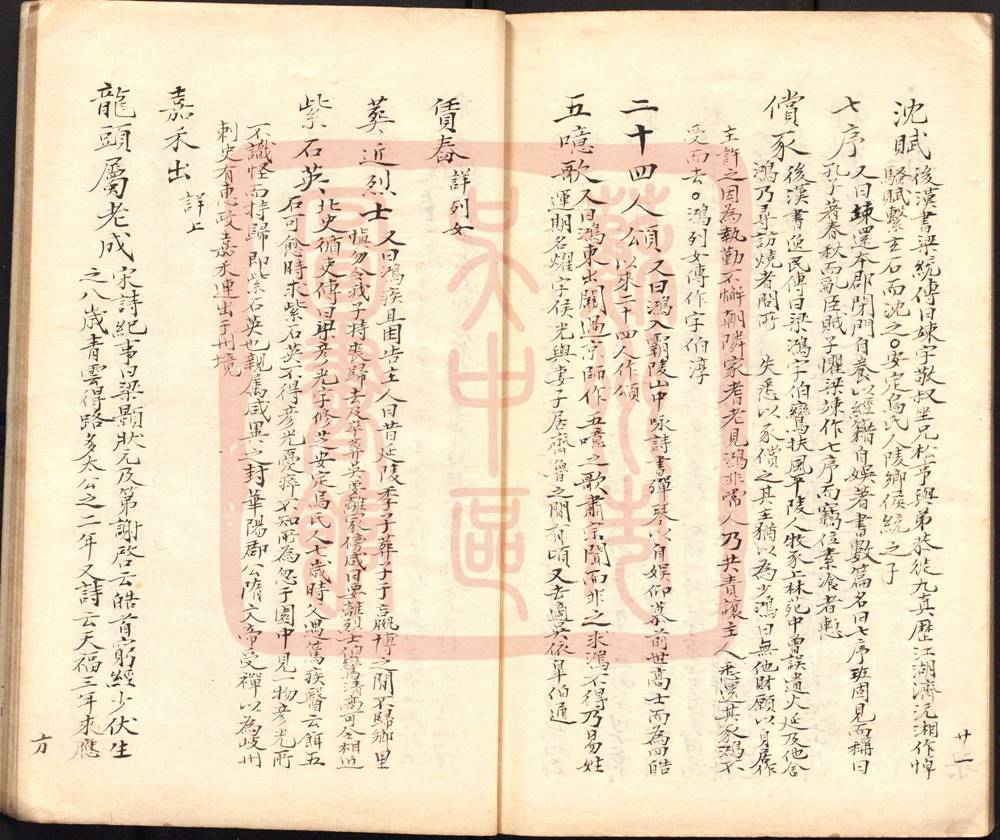 沈賦 後漢書梁統傳曰竦字敬叔坐兄松事與弟恭徙九真歷江湖濟沅湘作悼
騷賦繫玄石而沈之○安定烏氏人陵鄉侯統之子
七序 又曰竦還本郡閉門自養以經籍自娛著書數篇名曰七序班固見而稱曰
孔子著春秋而亂臣賊子懼梁竦作七序而竊位素飡者慙
償豕 後漢書逸民傳曰梁鴻字伯鸞扶風平陵人牧豕上林苑中曾誤遺火延及他舍
鴻乃尋訪燒者問所 失悉以豕償之其主猶以為少鴻曰無他財願以身居作
主許之因為執勤不懈朝隣家耆老見鴻非常人乃共責讓主人 悉還其豕鴻不
受而去○鴻列女傳作字伯淳
二十四人頌 又曰鴻入霸陵山中咏詩書彈琴以自娛仰慕前世高士而為四皓
以來二十四人作頌
五噫歌 又曰鴻東出關過京師作五噫之歌肅宗聞而非之求鴻不得乃易姓
運期名燿字侯光與妻子居齊魯之間有頃又去適吳依皋伯通
賃舂 詳列女
葬近烈士 又曰鴻疾且困告主人曰昔延陵季子葬子于嬴博之間不歸鄉里
慎勿令我子持喪歸去及卒葬吳要離冢傍咸曰要離烈士伯鸞清高可令相近
紫石英 北史循吏傳曰梁彥光字修芝安定烏氏人七歲時父遇篤疾醫云餌五
石可愈時求紫石英不得彥光憂瘁不知所為忽于園中見一物彥光所
不識怪而持歸即紫石英也親屬咸異之封華陽郡公隋文帝受禪以為岐州
刺史有惠政嘉禾連出于州境
嘉禾出 詳上
龍頭屬老成 宋詩紀事曰梁顥狀元及第謝啓云皓首窮經少伏生
之八歲青雲得路多太公之二年又詩云天福三年來應
廿一